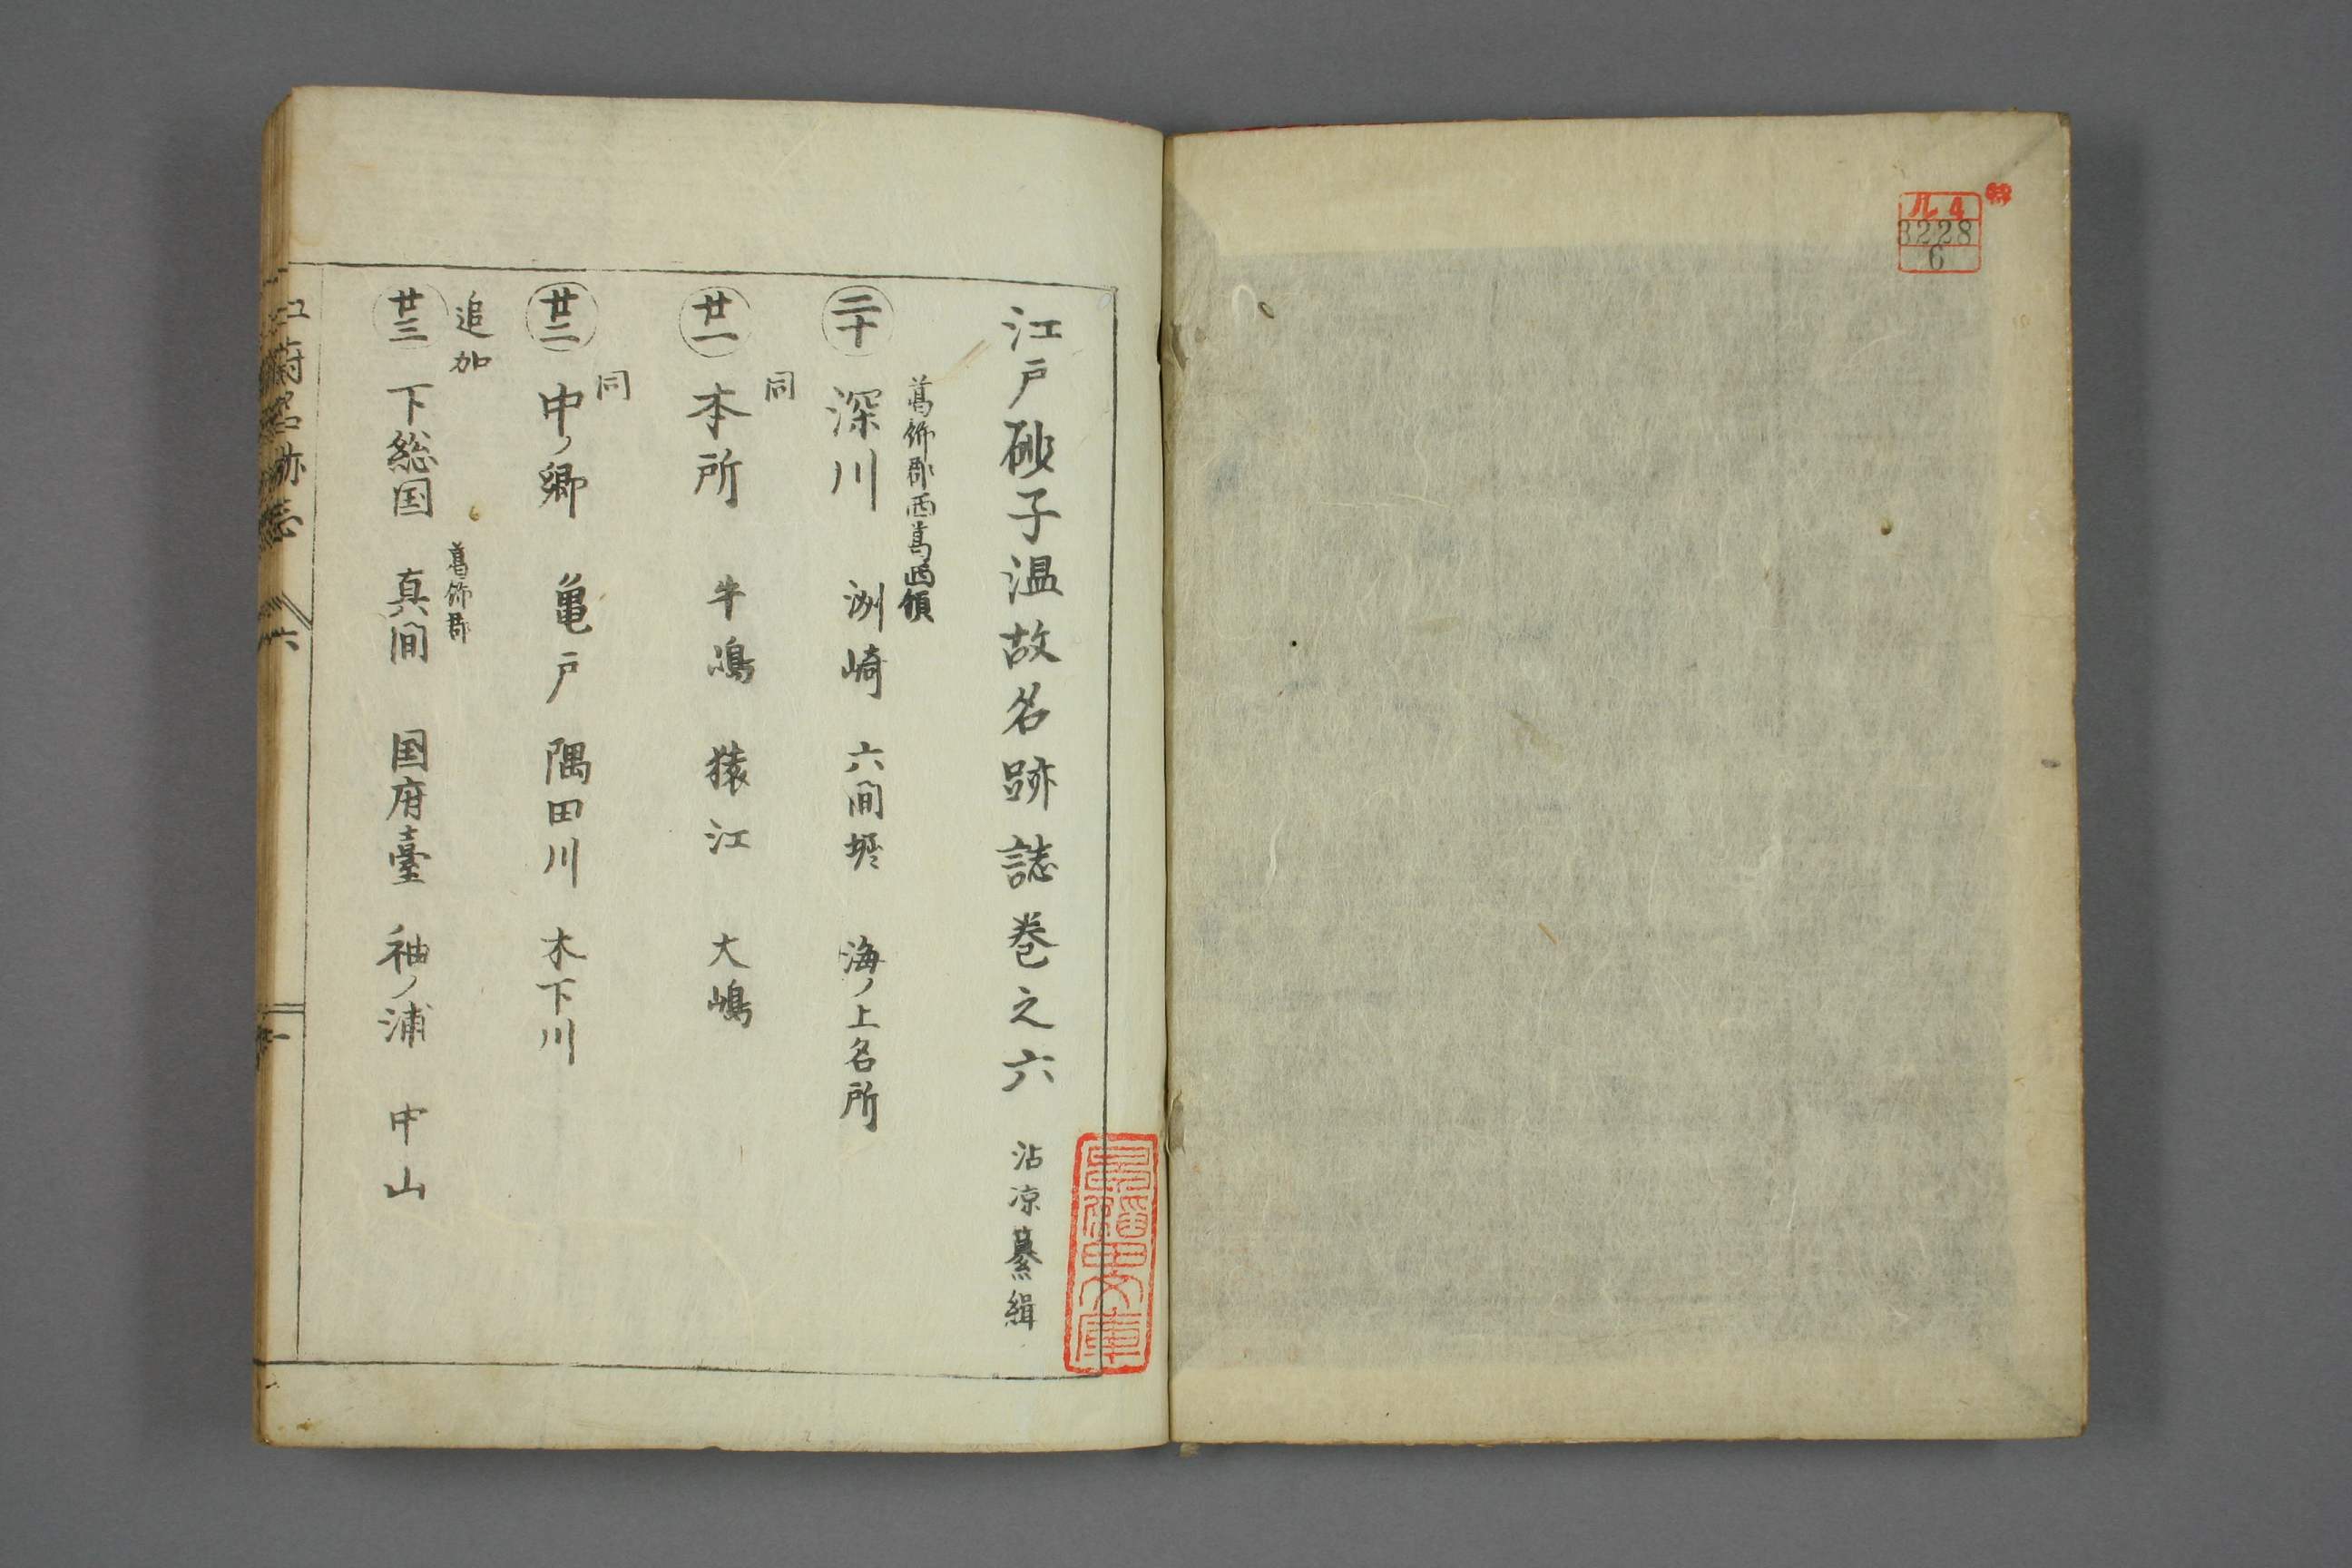 ル4
3228
6
江戸砂子温故名跡誌巻之六 沾凉纂緝
葛飾郡西葛西領
二十 深川 洲崎 六間堀 海ノ上名所
同
廿一 本所 牛嶋 猿江 大嶋
同
廿二 中ノ郷 亀戸 隅田川 木下川
追加
葛飾郡
廿三 下総国 真間 国府臺 袖ノ浦 中山
六